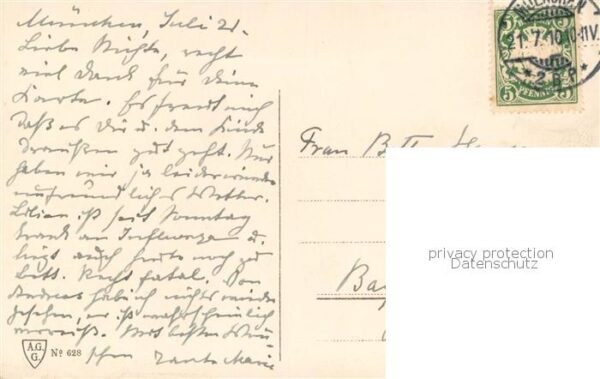 München, Juli 21.
Liebe Nichte, recht
viel Dank für Deine
Karte. Es freut mich
daß es Dir u. dem Kind
draußen gut geht. Nur
haben wir ja leider wieder
unfreundliches Wetter.
Lilian ist seit Sonntag
krank an Influenza u.
liegt auch heute noch zu
Bett. Recht fatal. Von
Andreas hab ich nichts wieder
gesehen, er ist wahrscheinlich
verreist. Mit besten Wün-
schen Tante Marie
A.G.
G.
No 628
MUENCHEN
1.7.10 10-11V.
* 2 B.P. *
5 5
PFENNIG
5 5
Frau B.
Ba
privacy protection
Datenschutz